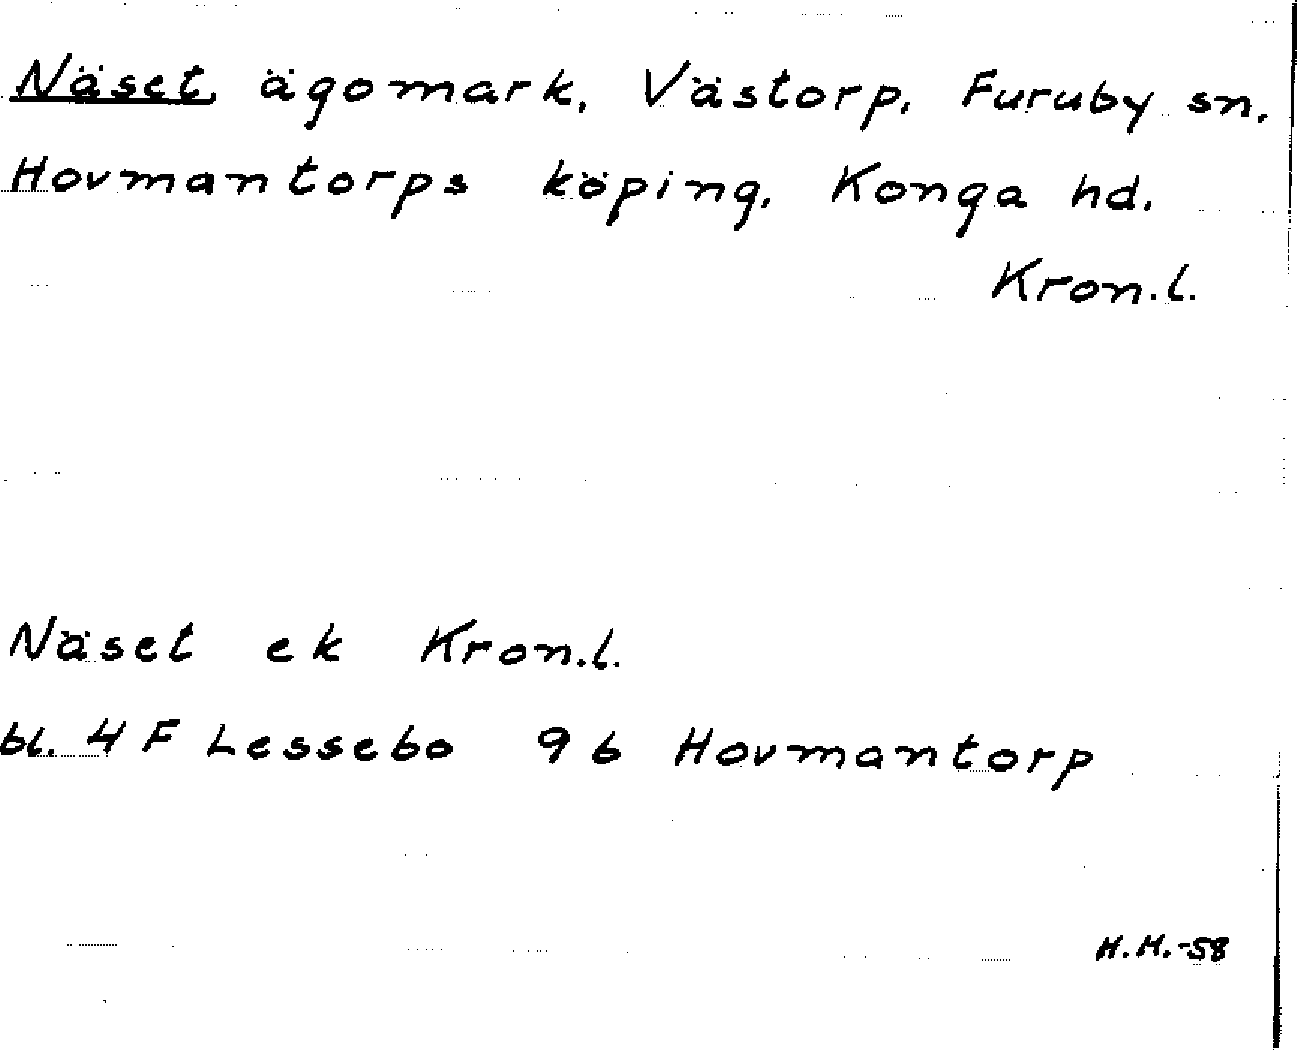 Näset, ägomark, Västorp, Furuby sn.
Hovmantorps köping, Konga hd.
Kron.l.
Näset ek Kron.l.
bl. 4 F Lessebo 9b Hovmantorp
H.H.-58